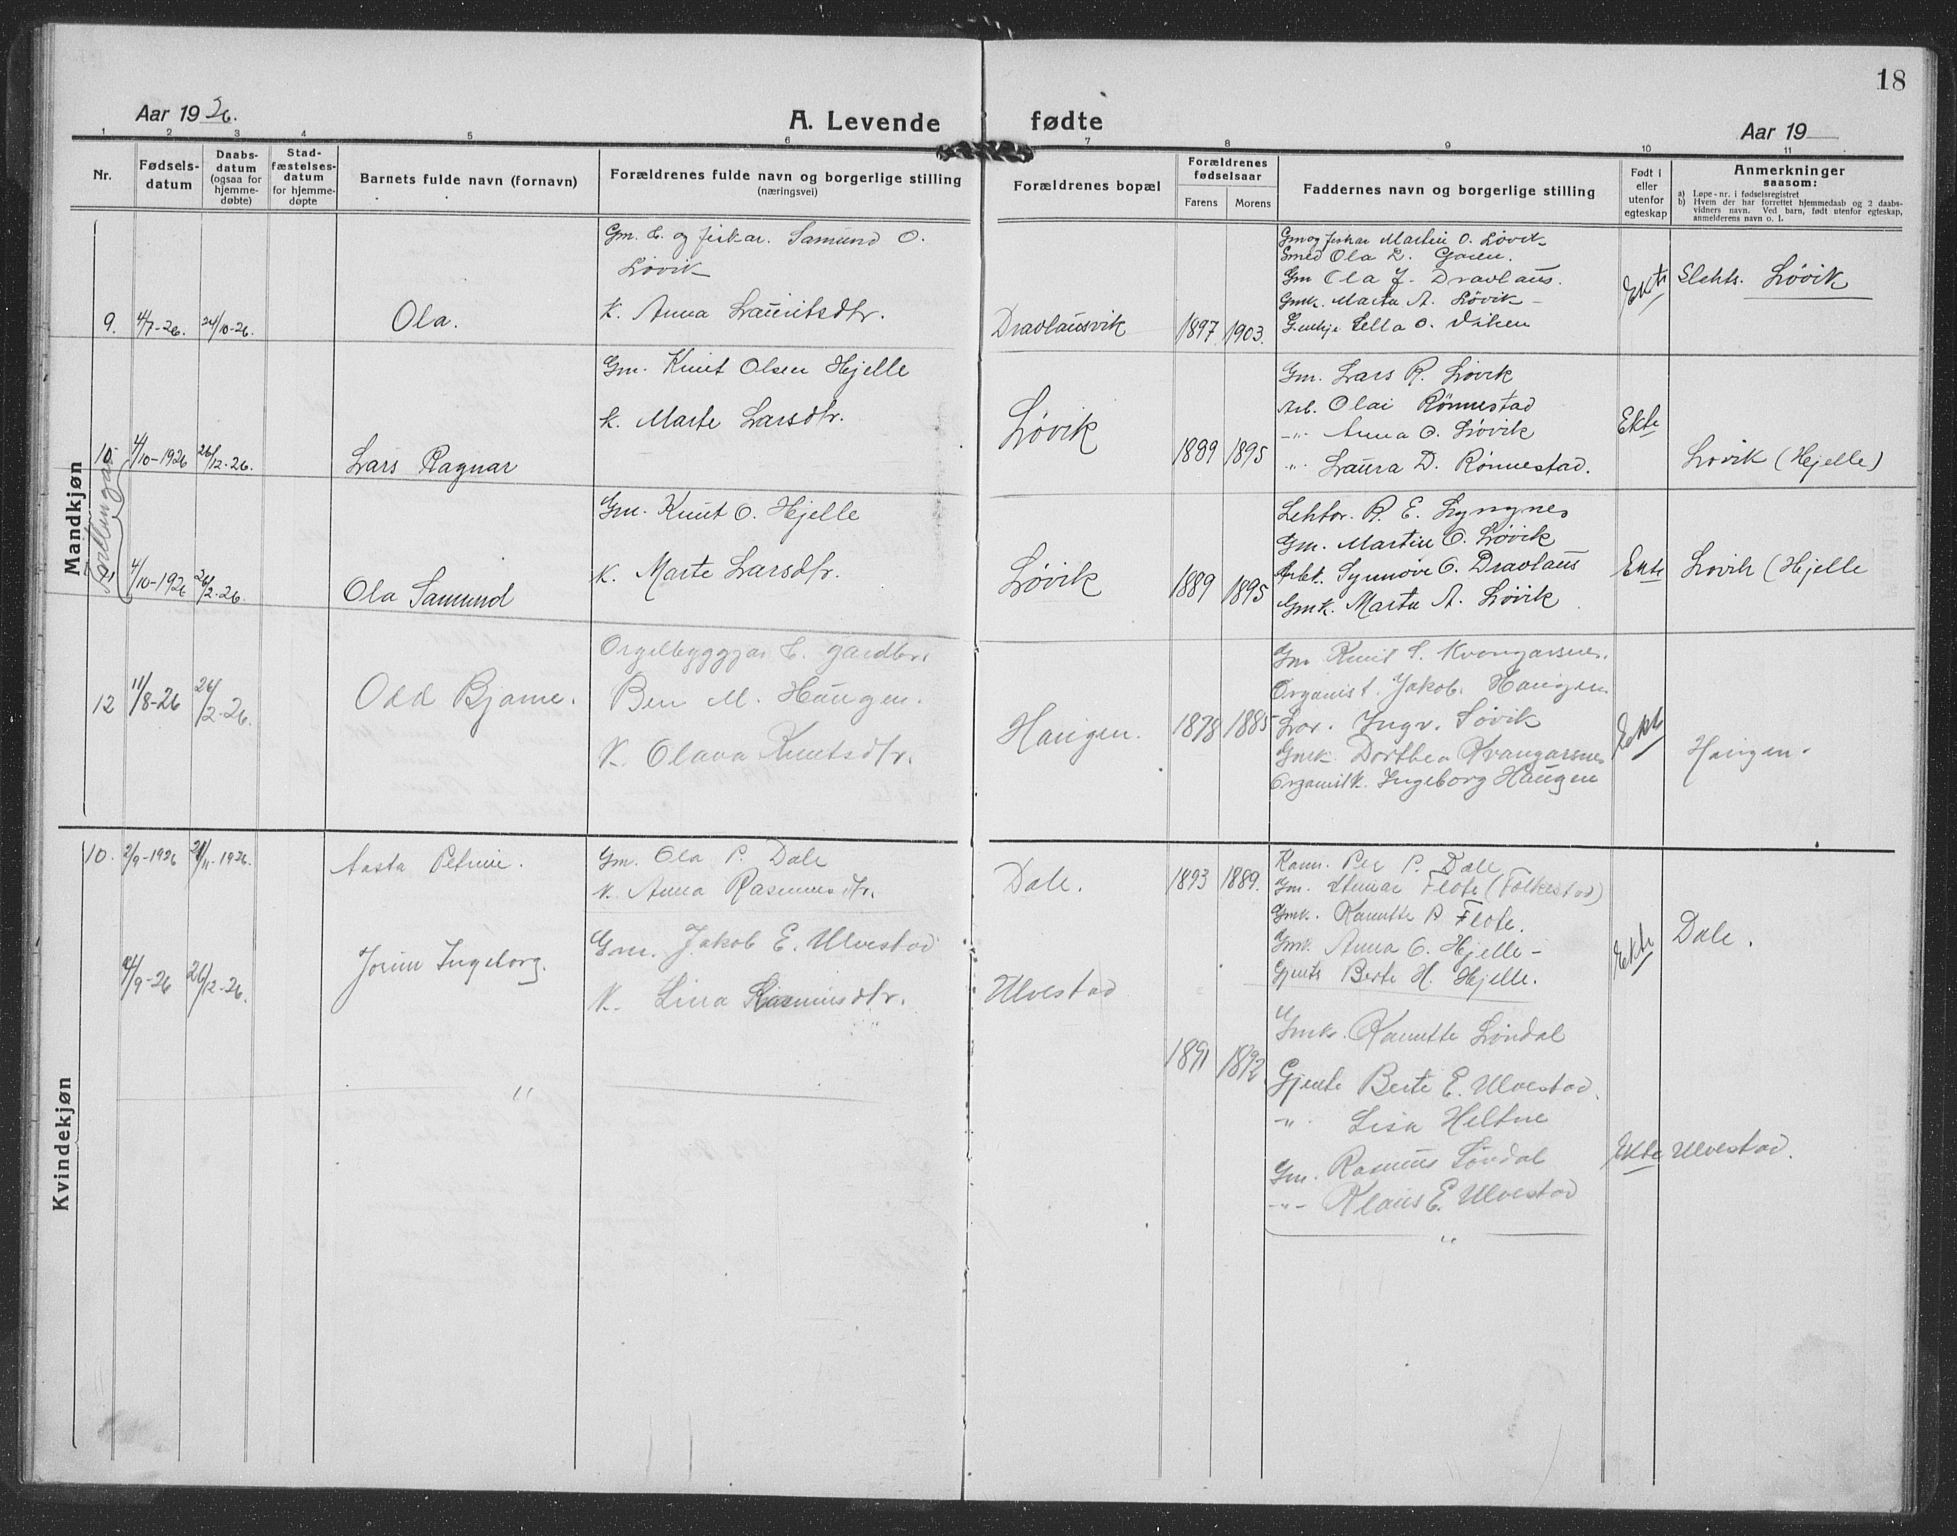 18
Aar 1926.
A. Levende fødte
Aar 19
1 2 3 4 5 6 7 8 9 10 11
Nr.
Fødsels-
datum
Daabs-
datum
(ogsaa for
hjemme-
døbte)
Stad-
fæstelses-
datum
for hjemme-
døpte
Barnets fulde navn (fornavn)
Forældrenes fulde navn og borgerlige stilling
(næringsvei)
Forældrenes bopæl
Forældrenes
fødselsaar
Farens Morens
Faddernes navn og borgerlige stilling
Født i
eller
utenfor
egteskap
Anmerkninger
saasom:
a) Løpe-nr. i fødselsregistret
b) Hvem der har forrettet hjemmedaab og 2 daabs-
vidners navn. Ved barn, født utenfor egteskap,
anmelderens navn o. l.
Mandkjøn
9. 4/7-26. 24/10-26. Ola.
Gm. E. og fiskar. Samund O.
Løvik
K. Anna Lauritsdtr.
Dravlausvik 1897 1903.
Gm og fiskar Martin O. Løvik
Smed Ola L.
Gm Ola J. Dravlaus.
Gmk. Marta A. Løvik -
O. Viken
Ekte
Slekts. Løvik
10. 4/10-1926 26/12-26. Lars Ragnar
Gm. Knut Olsen Hjelle
K. Marte Larsdtr.
Løvik 1889 1895
Gm. Lars R. Løvik
Arb. Olai Rønnestad
-"- Anna O. Løvik
" Laura D. Rønnestad.
Ekte
Løvik (Hjelle)
Tvillingar
11 4/10-1926 26/12-26. Ola Samund
Gm. Knut O. Hjelle
K. Marte Larsdtr.
Løvik 1889 1895
Lektor. R. E. Lyngnes
Gm. Martin O. Løvik
Arbt. Synnøve O. Dravlaus
Gmk. Marta A. Løvik
Ekte
Løvik (Hjelle
12 11/8-26 26/12-26. Odd Bjarne.
Orgelbyggjar E. gardbr.
Ben M. Haugen.
K. Olava Knutsdtr.
Haugen. 1878 1885
Gm Knut S. Kvangarsnes.
Organist. Jakob. Haugen.
Lør. Ingv. Løvik
Gmk. Dorthea Kvangarsnes
Organistk. Ingeborg Haugen
Ekte
Haugen.
Kvindekjøn
10. 2/9-1926 21/11-1926. Aasta Petrine.
Gm. Ola P. Dale
K. Anna Rasmusdtr.
Dale. 1893 1889.
Kann. Per P. Dale
Gm. Steinar Flote (Folkestad)
Gmk. Kanutte P Flote.
Gmk. Anna O. Hjelle -
Gjente Berte H. Hjelle.
Ekte
Dale.
/9-26 26/12-26. Jorun Ingeborg.
Gm. Jakob E. Ulvestad
K. Lina Rasmusdtr.
Ulvestad
1891 1892
Gmk. Kanutte Løndal
Gjente Berte E. Ulvestad.
-"- Lisa Heltne
Gm. Rasmus Løndal
-"- Klaus E. Ulvestad
Ekte Ulvestad.
"
"